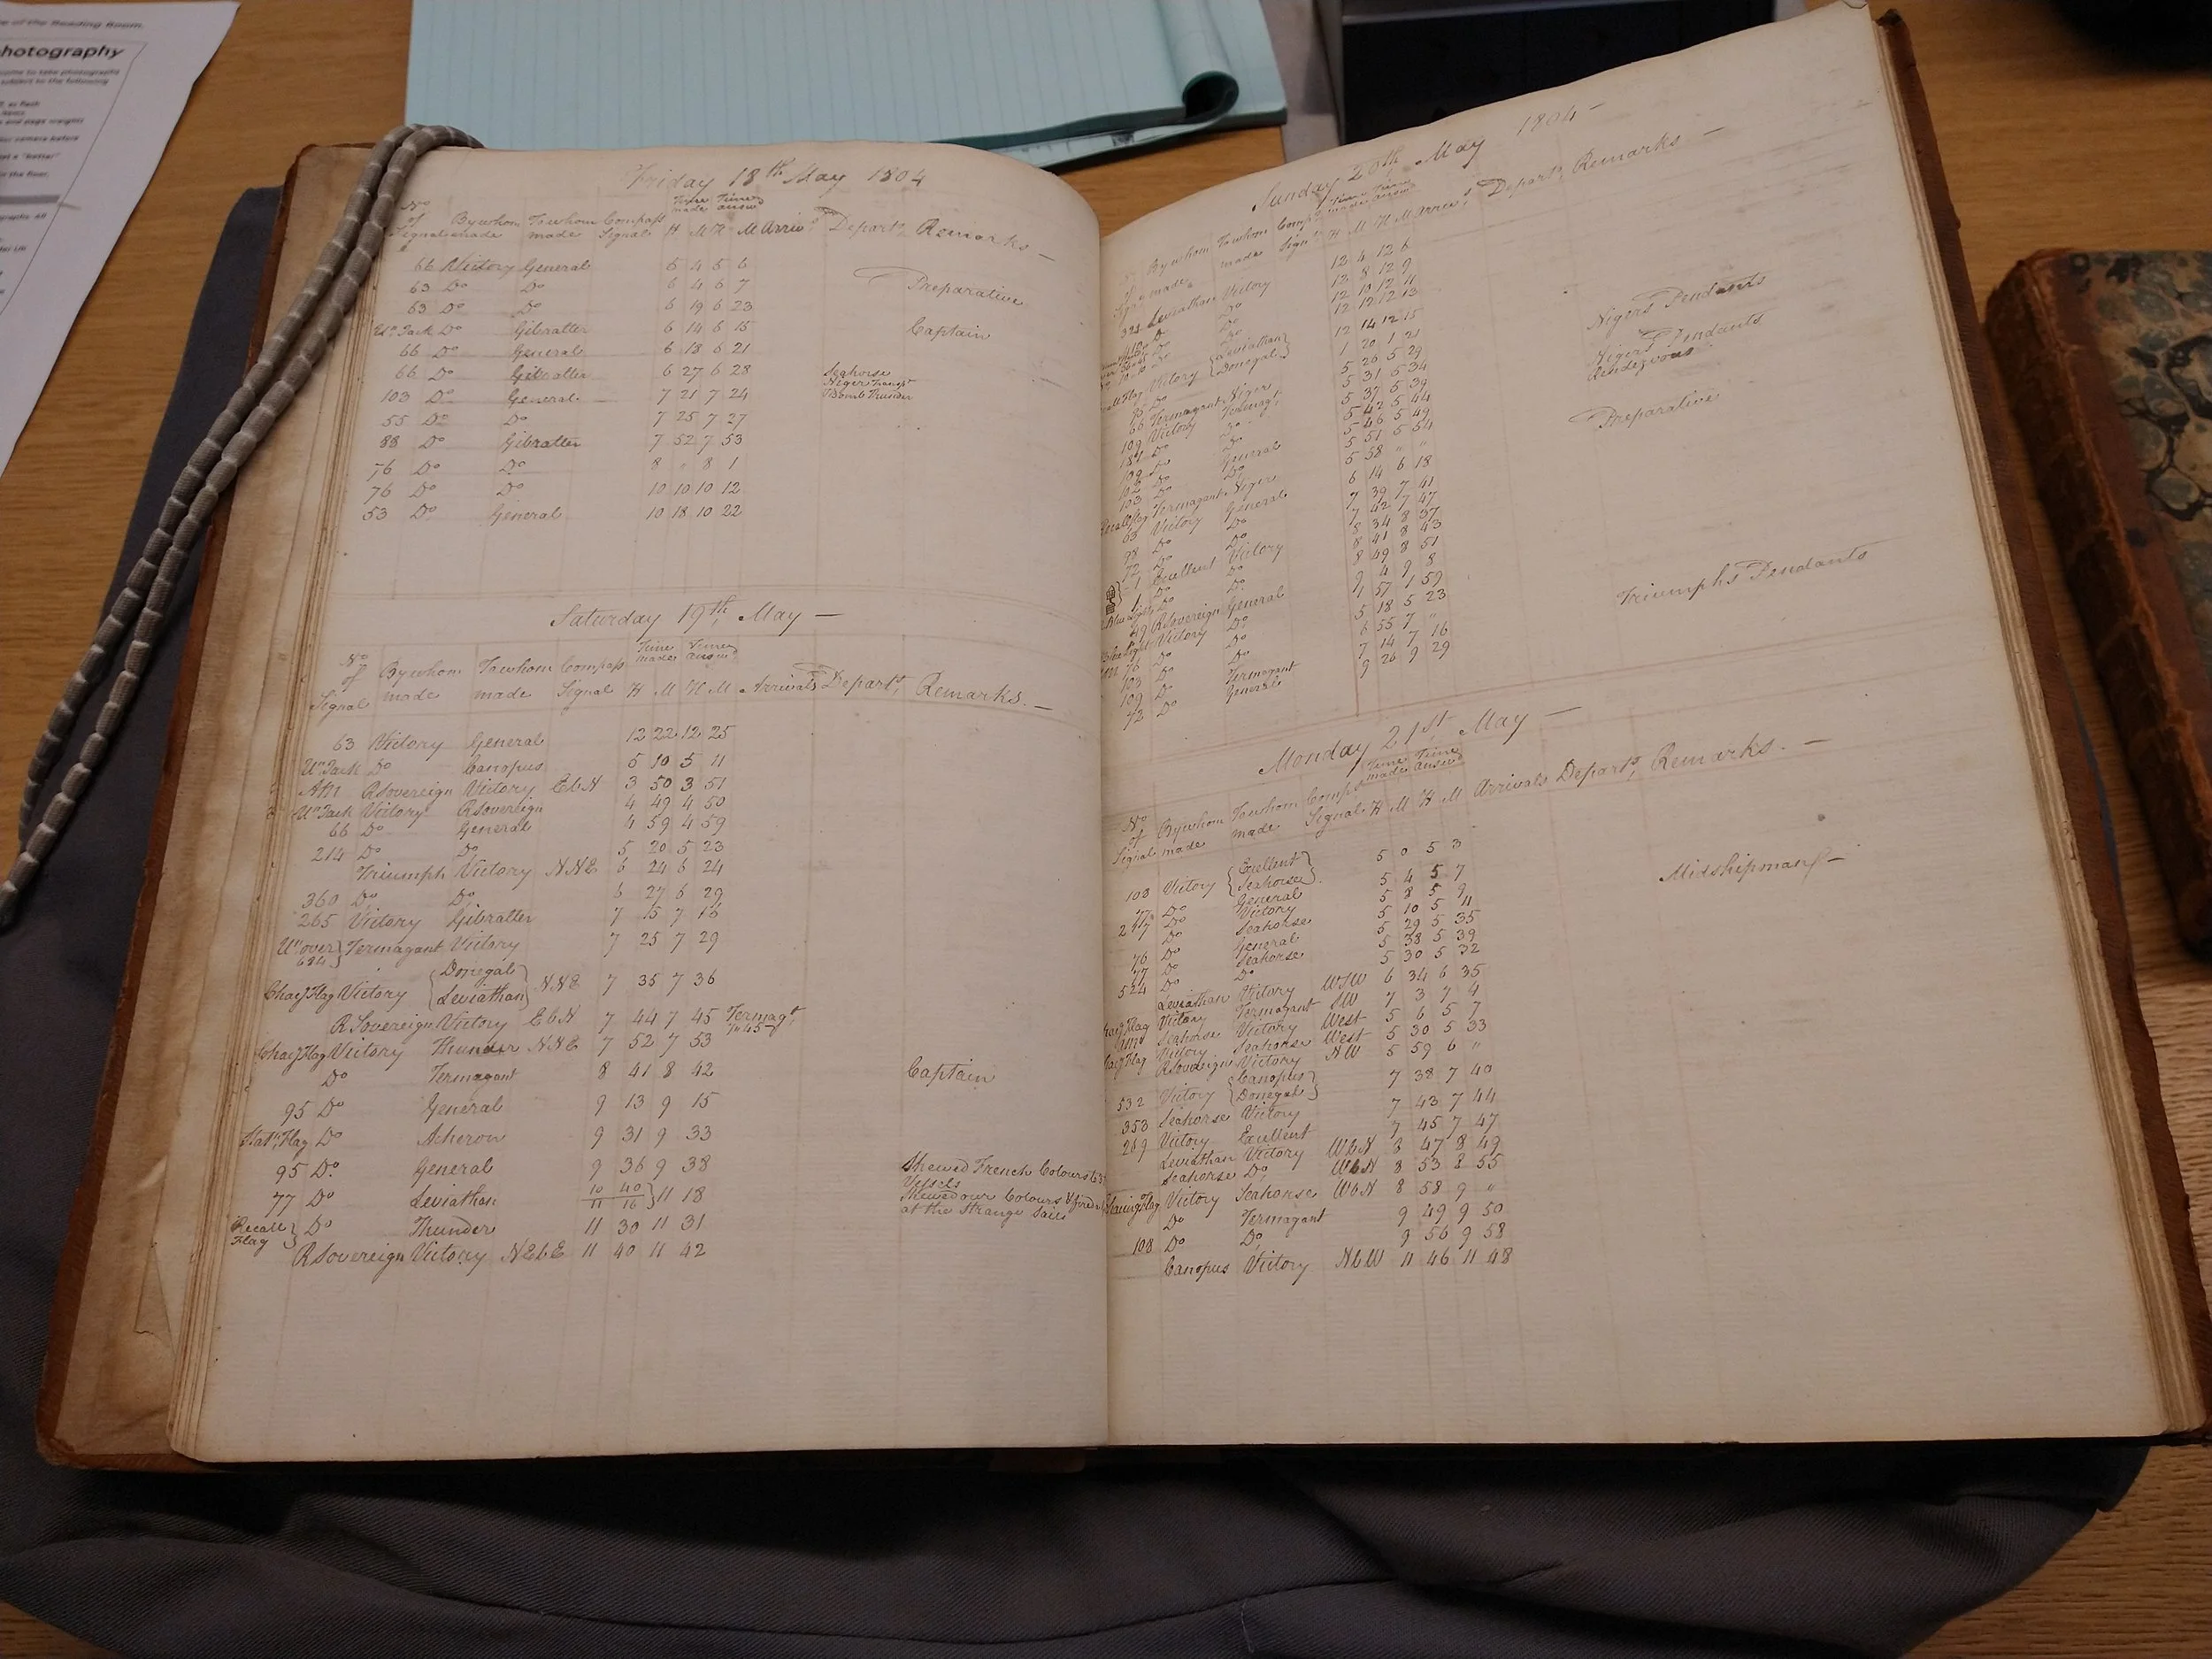 e of the Reading Room.
hotography
come to take photographs
subject to the following
Friday 18th May 1804
No of Signal By whom made To whom made Compass Signal Time made H M Time answd H M Arrivs Departs Remarks —
66 Victory General 5 4 5 6
63 Do Do 6 4 6 7 Preparative
63 Do Do 6 19 6 23
Un Jack Do Gibralter 6 14 6 15 Captain
66 Do General 6 18 6 21
66 Do Gibralter 6 27 6 28 Seahorse
Niger Transpt
103 Do General 7 21 7 24 Bomb Thunder
55 Do Do 7 25 7 27
88 Do Gibralter 7 52 7 53
76 Do Do 8 " 8 1
76 Do Do 10 10 10 12
53 Do General 10 18 10 22
Saturday 19th May —
No of Signal By whom made To whom made Compass Signal Time made H M Time answd H M Arrivals Departs Remarks. —
63 Victory General 12 22 12 25
Un Jack Do Canopus 5 10 5 11
RSovereign Victory EbN 3 50 3 51
Un Jack Victory RSovereign 4 49 4 50
66 Do General 4 59 4 59
214 Do Do 5 20 5 23
Triumph Victory NNE 6 24 6 24
360 Do Do 6 27 6 29
265 Victory Gibralter 7 15 7 16
Un over 684 } Termagant Victory 7 25 7 29
Chaсg Flag Victory { Donegal Leviathan } NNE 7 35 7 36
RSovereign Victory EbN 7 44 7 45 Termagt
Chacg Flag Victory Thunder NNE 7 52 7 53
Do Termagant 8 41 8 42 Captain
95 Do General 9 13 9 15
Natl Flag Do Acheron 9 31 9 33
95 Do General 9 36 9 38 Shewed French Colours to
Vessels
77 Do Leviathan 10 40 11 16 } 11 18 Shewed our Colours & fired
at the Strange Sails
Recall Flag } Do Thunder 11 30 11 31
RSovereign Victory NEbE 11 40 11 42
Sunday 20th May 1804 —
By whom made To whom made Time made Time answd H M H M Departs Remarks —
Leviathan Victory 12 4 12 6
Do 12 8 12 9
Do 12 10 12 11
Do 12 12 12 13
Victory { Leviathan Donegal } 12 14 12 15
1 20 1 21 Nigers Pendants
Termagant Niger 5 26 5 29
109 Victory Termagt 5 31 5 34 Nigers Pendants
Do 5 37 5 39 Rendezvous
109 Do 5 42 5 44
102 Do General 5 46 5 49
103 Do Do 5 51 5 54 Preparative
Recall Flag Termagant Niger 5 58 " "
63 Victory General 6 14 6 18
98 Do Do 7 39 7 41
72 Do 7 42 7 47
1 Excellent Victory 8 34 8 37
1 Do Do 8 41 8 43
Do Do 8 49 8 51
49 RSovereign General 9 4 9 8
Victory Do 1 57 1 59
76 Do Do 5 18 5 23
103 Do Do 6 55 7 "
109 Do Termagant 7 14 7 16 Triumphs Pendants
72 Do General 9 26 9 29
Monday 21st May —
No of Signal By whom made To whom made Comps Signal Time made H M Time answd H M Arrivals Departs Remarks. —
103 Victory { Excellent Seahorse } 5 0 5 3
77 Do General 5 4 5 7 Midshipman
Do Victory 5 8 5 9
Do Seahorse 5 10 5 11
76 Do General 5 29 5 35
77 Do Seahorse 5 38 5 39
524 Do Do 5 30 5 32
Leviathan Victory WSW 6 34 6 35
Victory Termagant SW 7 3 7 4
Seahorse Victory West 5 6 5 7
Victory Seahorse West 5 30 5 33
RSovereign Victory NW 5 59 6 "
532 Victory { Canopus Donegal } 7 38 7 40
353 Seahorse Victory 7 43 7 44
269 Victory Excellent 7 45 7 47
Leviathan Victory WbN 8 47 8 49
Seahorse Do WbN 8 53 8 55
Chaceing Flag Victory Seahorse WbN 8 58 9 "
Do Termagant 9 49 9 50
108 Do Do 9 56 9 58
Canopus Victory NbW 11 46 11 48